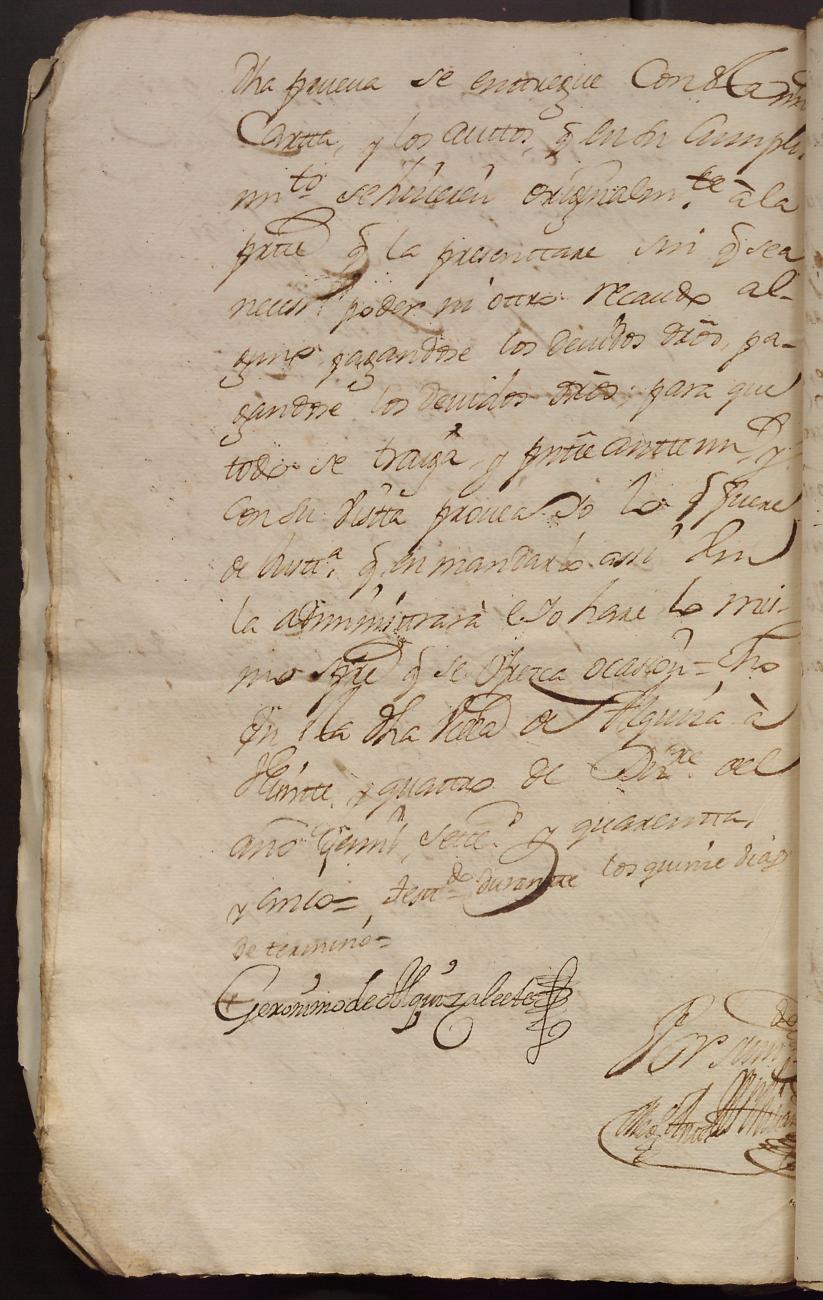 Dha prueua se entregue Con esta mi
Cartta, y los auttos q̃ en su Cumpli
mto. se hiçieren originalmte. a la
prte q̃ la presenttare sin q̃ sea
neces.o poder ni ottro recaudo al-
guno pagandose los deuidos drõs, pa-
gandose los deuidos drõs; para que
todo se traiga, y pnte antte mi, y
con su vistta prouea Yo lo q̃ fuere
de Justt.a q̃ en mandarlo assi Vm
la administrarà e Yo hare lo mis-
mo spre q̃ se ofrezca ocasion = fho
En la dha Villa de Elgueta à
Veintte y quattro de Diz.re del
año de mil, sette.s y quarentta,
y cinco = test.do durantte los quince dias
de termino =
Geronimo de
Por su m.do